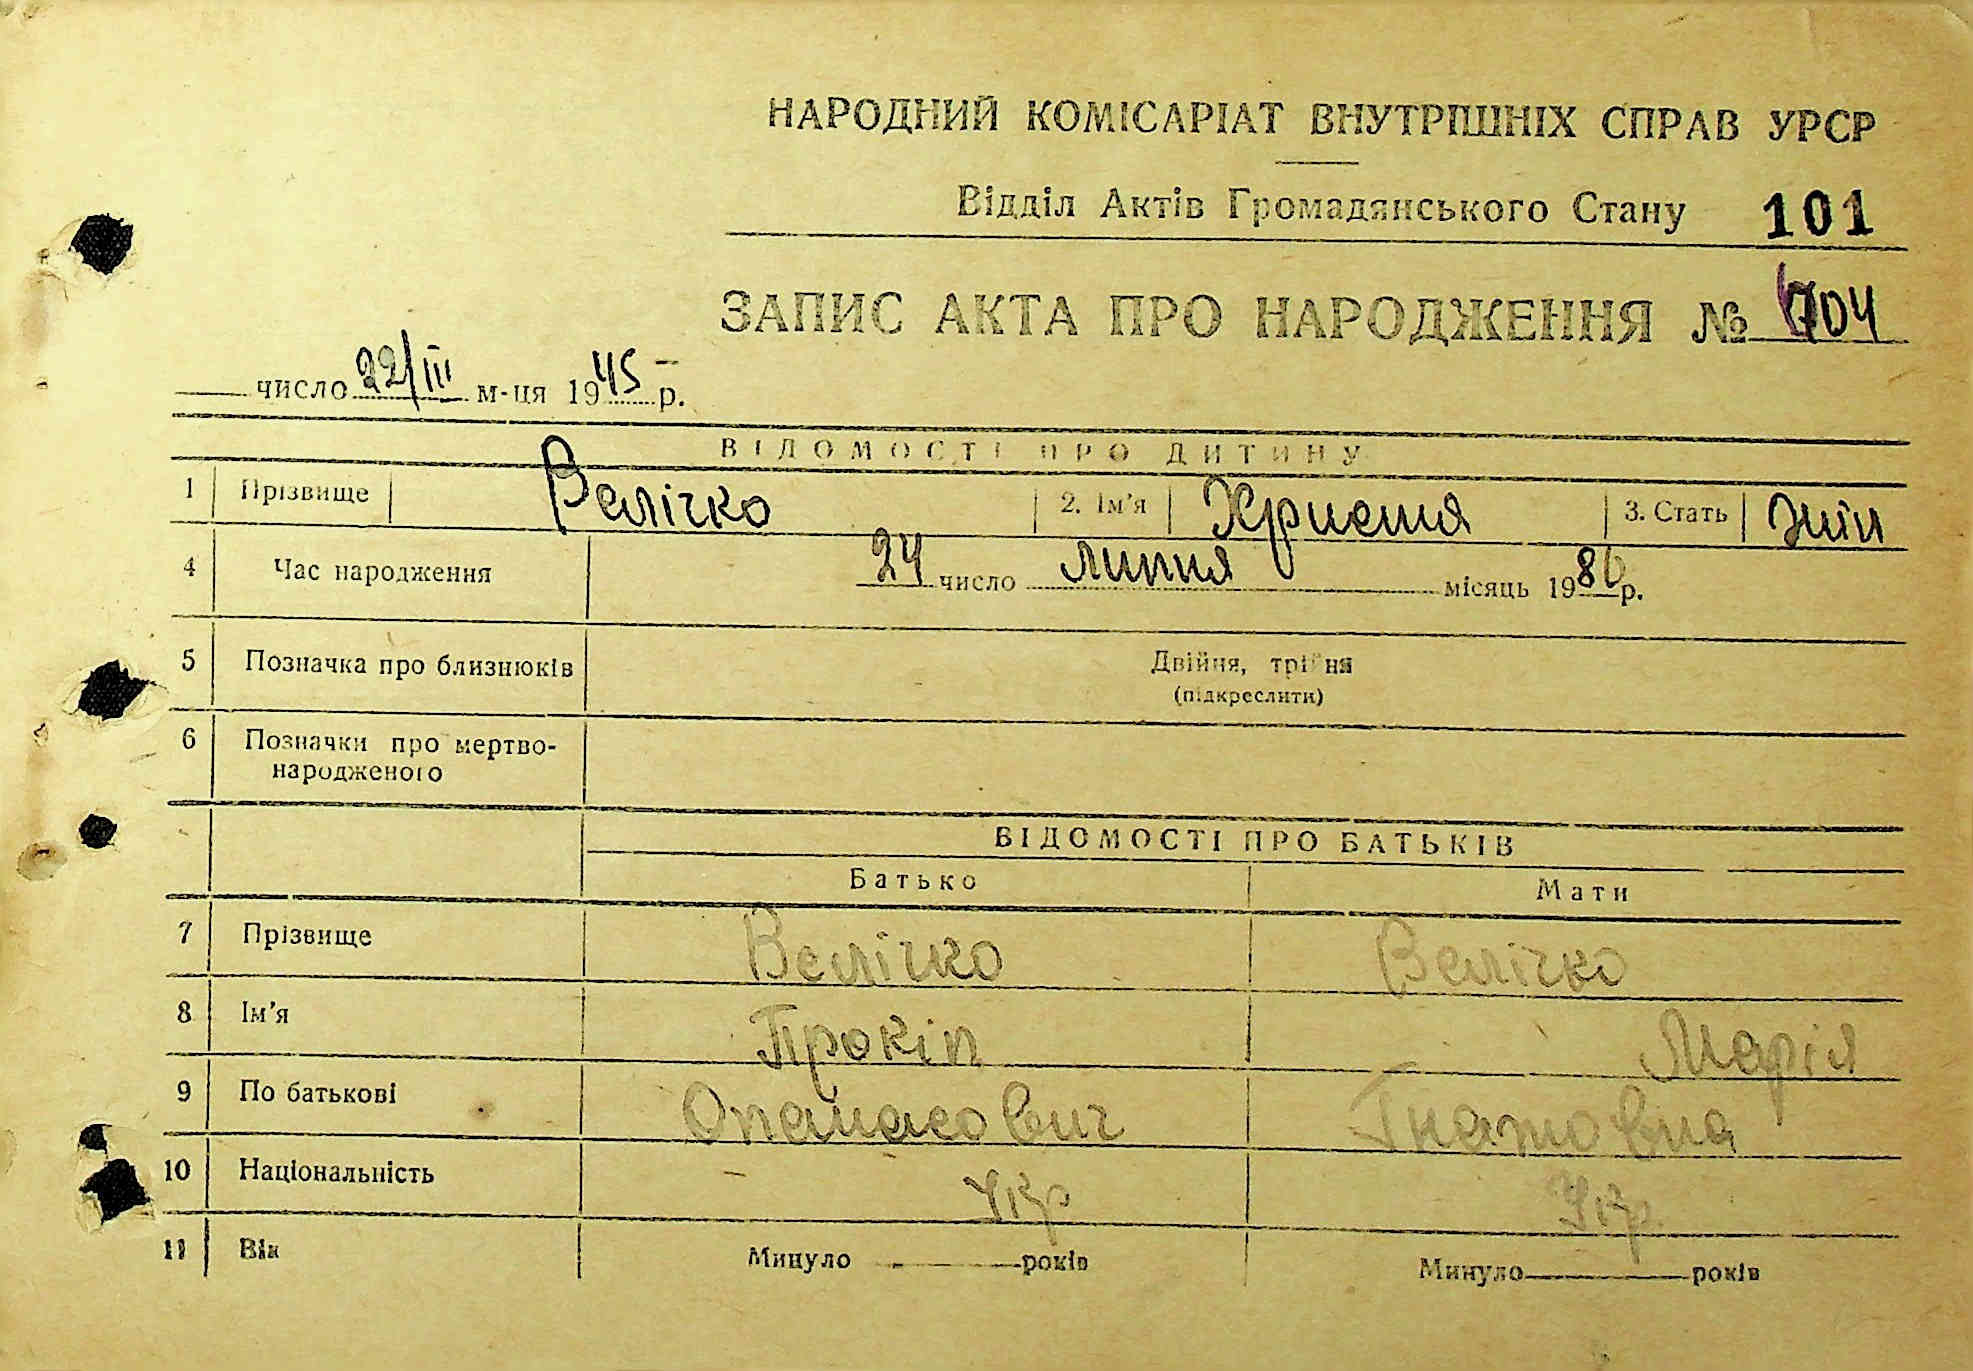 НАРОДНИЙ КОМІСАРІАТ ВНУТРІШНІХ СПРАВ УРСР
Відділ Актів Громадянського Стану 101
ЗАПИС АКТА ПРО НАРОДЖЕННЯ № 704
число 22/III м-ця 1945 р.
ВІДОМОСТІ ПРО ДИТИНУ
1 Прізвище Велічко 2. Ім'я Христя 3. Стать жін
4 Час народження 24 число липня місяць 19 р.
5 Позначка про близнюків Двійня, трійня
(підкреслити)
6 Позначки про мертво-
народженого
ВІДОМОСТІ ПРО БАТЬКІВ
Батько Мати
7 Прізвище Велічко Велічко
8 Ім'я Прокіп Марія
9 По батькові Опанасович Гнатовна
10 Національність Укр Укр
11 Вік Минуло років Минуло років